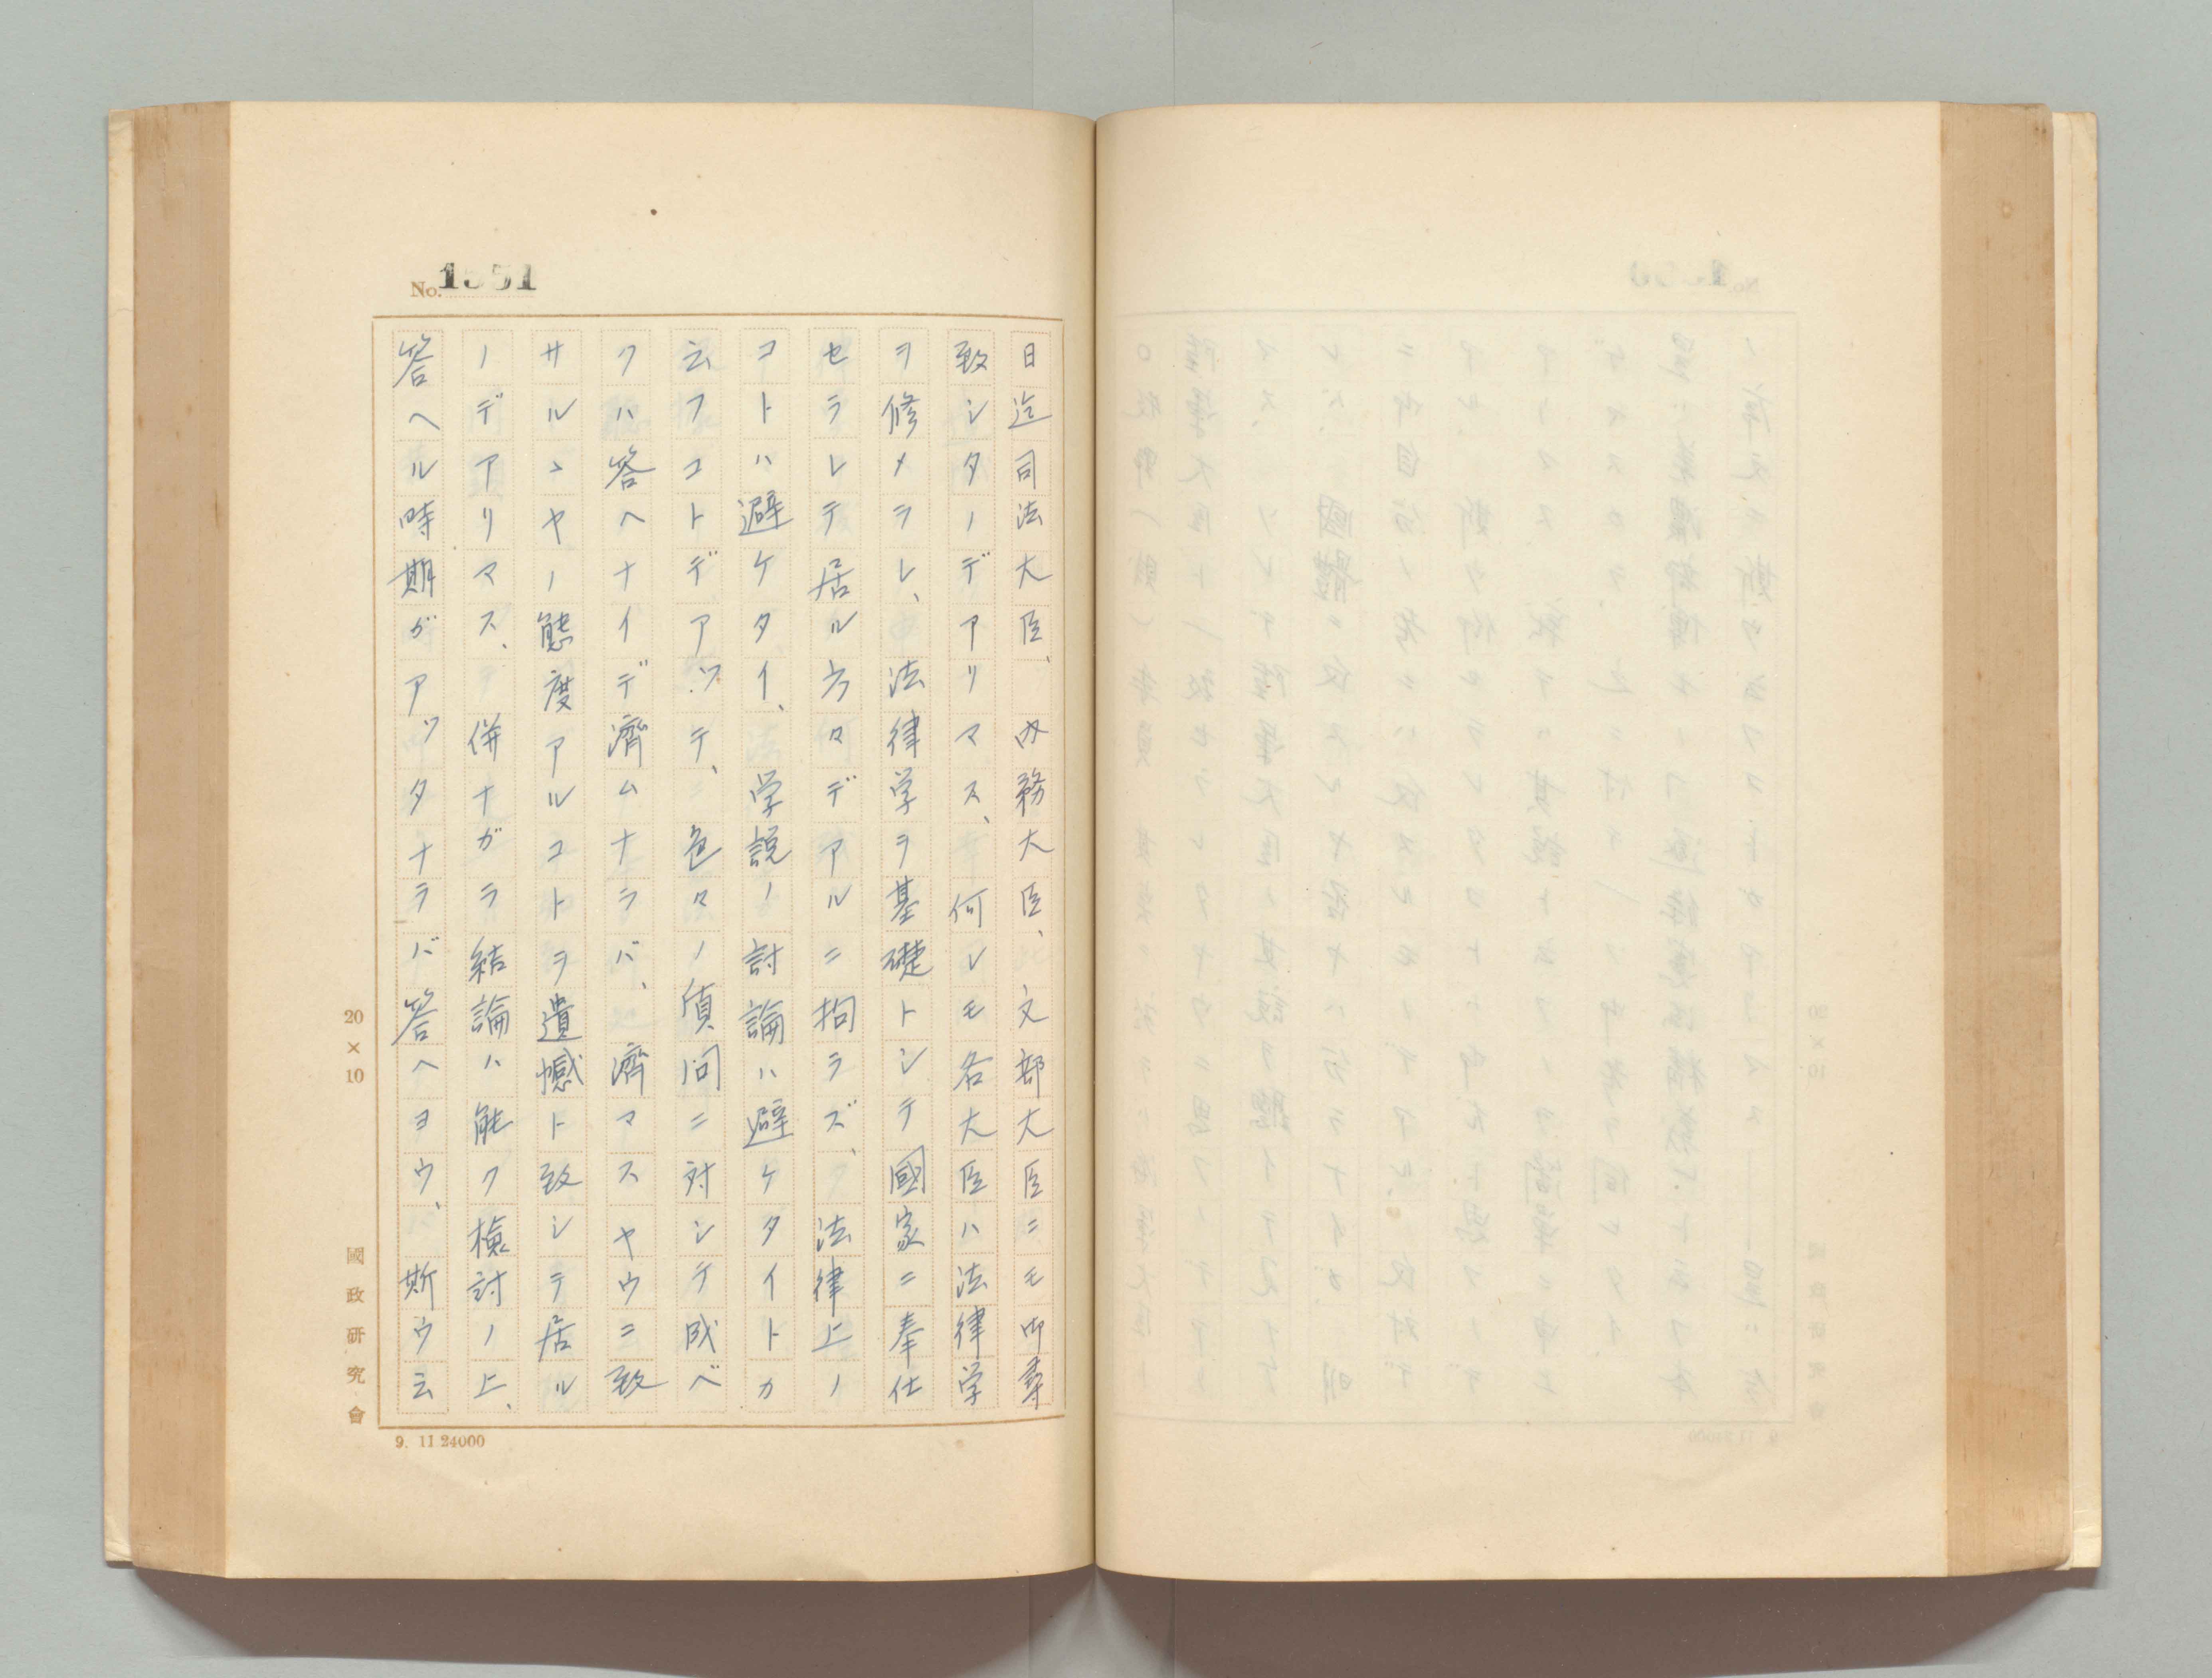 No. 1551
日迄司法大臣、内務大臣、文部大臣ニモ御尋
致シタノデアリマス、何レモ各大臣ハ法律学
ヲ修メラレ、法律学ヲ基礎トシテ國家ニ奉仕
セラレテ居ル方々デアルニ拘ラズ、法律上ノ
コトハ避ケタイ、学説ノ討論ハ避ケタイトカ
云フコトデアツテ、色々ノ質問ニ対シテ成ベ
クハ答ヘナイデ濟ムナラバ、濟マスヤウニ致
サルヽヤノ態度アルコトヲ遺憾ト致シテ居ル
ノデアリマス、併ナガラ結論ハ能ク檢討ノ上、
答ヘル時期ガアツタナラバ答ヘヨウ、斯ウ云
20×10
國政研究會
9. 11 24000